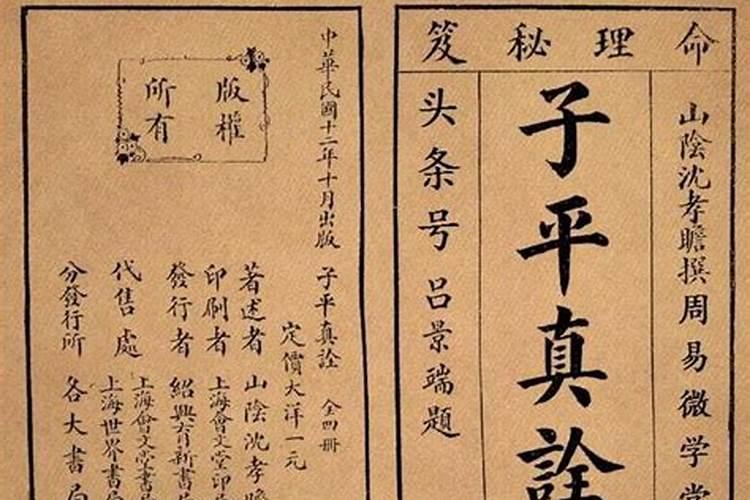 命理秘笈
山陰沈孝瞻撰周易微学堂
子平真詮
头条号吕景端題
中華民國十二年十月出版
版權
所有
子平真詮 全四冊
定價大洋一元
著述者 山陰沈孝瞻
印刷者 上海會文堂印
發行者 紹興育新書
代售處 上海會文堂書
上海世界書局
分發行所 各大書局